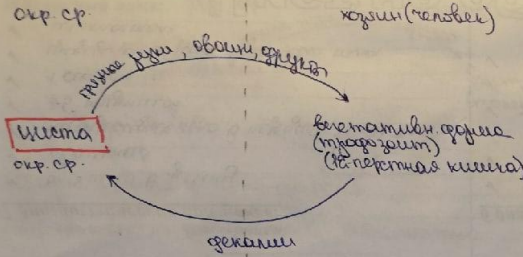 окр. ср.
хозяин (человек)
грязные руки, овощи, фрукты
циста
окр. ср.
вегетативн. форма
(трофозоит)
(12-перстная кишка)
фекалии